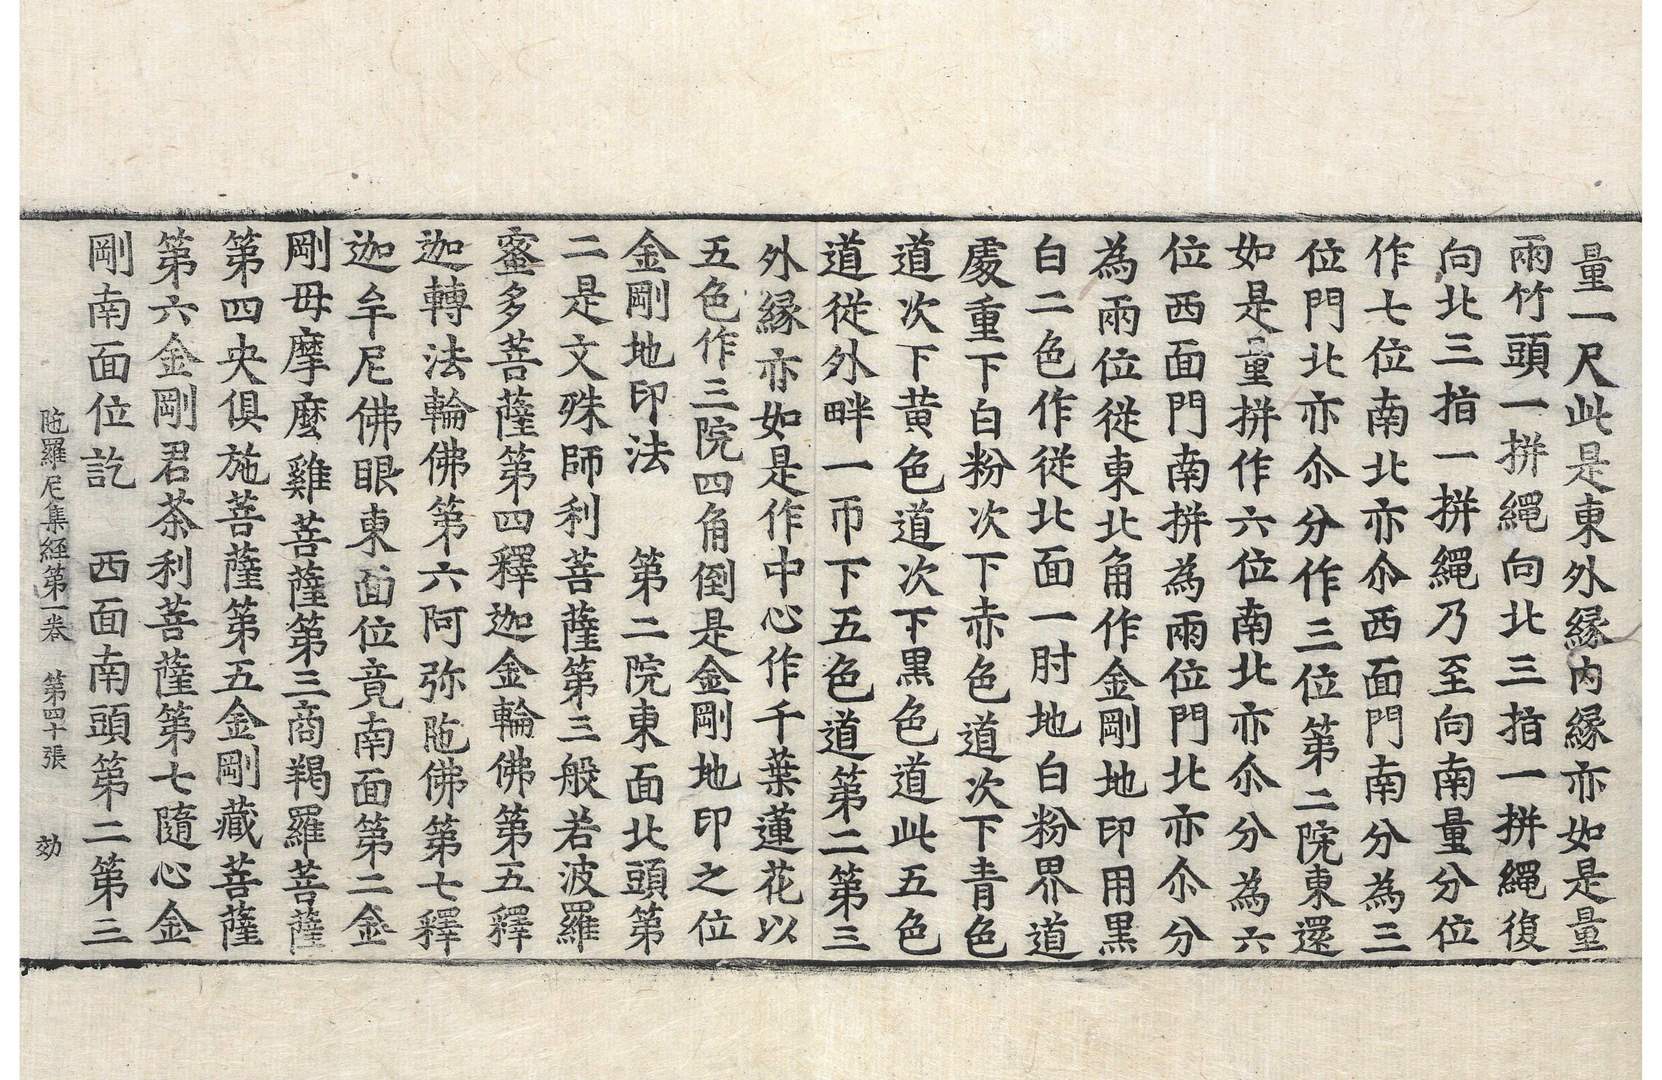 量一尺此是東外縁内縁亦如是量
兩竹頭一拼繩向北三指一拼繩復
向北三指一拼繩乃至向南量分位
作七位南北亦尒西面門南分為三
位門北亦尒分作三位第二院東還
如是量拼作六位南北亦尒分為六
位西面門南拼為兩位門北亦尒分
為兩位從東北角作金剛地印用黒
白二色作從北面一肘地白粉界道
䖏重下白粉次下赤色道次下青色
道次下黄色道次下黒色道此五色
道從外畔一帀下五色道第二第三
外縁亦如是作中心作千葉蓮花以
五色作三院四角倒是金剛地印之位
金剛地印法　第二院東面北頭第
二是文殊師利菩薩第三般若波羅
蜜多菩薩第四釋迦金輪佛第五釋
迦轉法輪佛第六阿弥陁佛第七釋
迦牟尼佛眼東面位竟南面第二金
剛母摩麼雞菩薩第三商羯羅菩薩
第四央俱施菩薩第五金剛藏菩薩
第六金剛君荼利菩薩第七隨心金
剛南面位訖　西面南頭第二第三
陁羅尼集経第一卷　第四十張　効